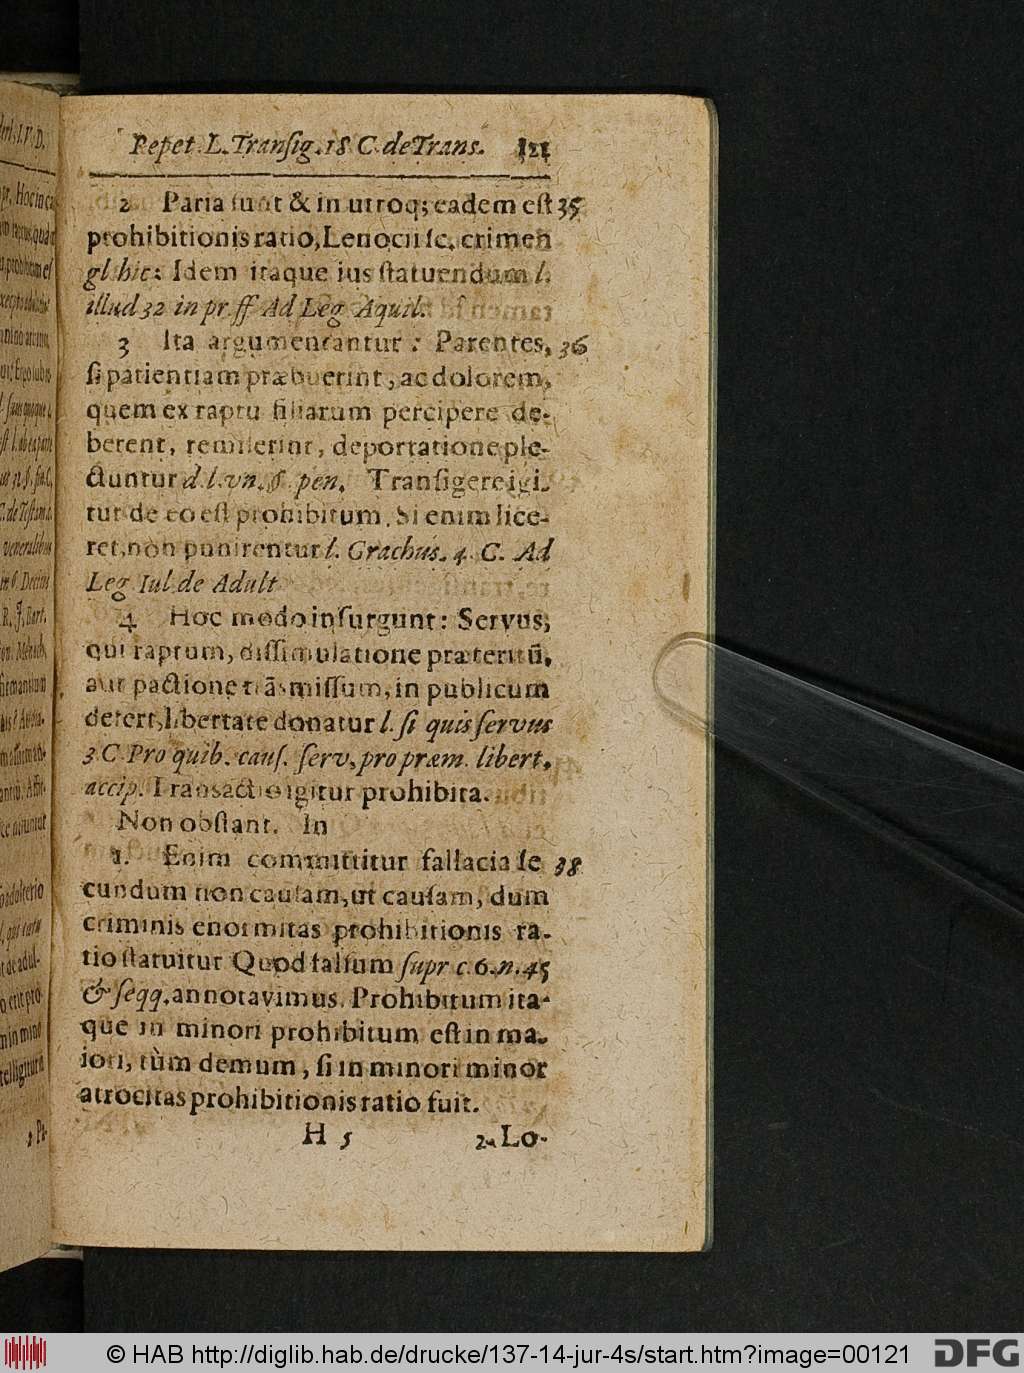 Repet. L. Transig. 18 C. de Trans. 121
2 Paria sunt & in utroq; eadem est 35
prohibitionis ratio, Lenocii sc. crimen
gl. hic: Idem itaque ius statuendum l.
illud 32 in pr. ff Ad Leg Aquil.
3 Ita argumentantur: Parentes, 36
si patientiam præbuerint, ac dolorem,
quem ex raptu filiarum percipere de-
berent, remiserint, deportatione ple-
ctuntur d. l. vn. §. pen. Transigere igi-
tur de eo est prohibitum. Si enim lice-
ret, non punirentur l. Grachus. 4. C. Ad
Leg Iul de Adult
4 Hoc modo insurgunt: Servus,
qui raptum, dissimulatione præteritũ,
aut pactione trãsmissum, in publicum
detert, libertate donatur l. si quis servus
3 C Pro quib. caus. serv. pro præm. libert.
accip. Transactio igitur prohibita.
Non obstant. In
1. Enim committitur fallacia se 38
cundum non causam, ut causam, dum
criminis enormitas prohibitionis ra-
tio statuitur Quod falsum supr c. 6. n. 45
& seqq. annotavimus. Prohibitum ita-
que in minori prohibitum est in ma-
iori, tùm demum, si in minori minor
atrocitas prohibitionis ratio fuit.
H 5 2. Lo-
© HAB http://diglib.hab.de/drucke/137-14-jur-4s/start.htm?image=00121 DFG